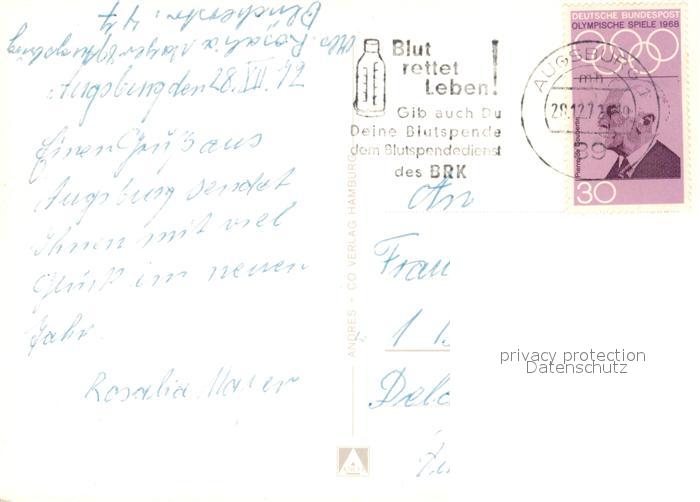 Blücherstr. 47
Abs. Rosalia Mayer 89 Augsburg
Augsburg den 28. XII. 72
Einen Gruß aus
Augsburg sendet
Ihnen mit viel
Glück im neuen
Jahr.
Rosalia Maier
ANDRES - CO VERLAG HAMBURG
Blut
rettet
Leben!
Gib auch Du
Deine Blutspende
dem Blutspendedienst
des BRK
AUGSBURG 1
mh
28.12.7
89
DEUTSCHE BUNDESPOST
OLYMPISCHE SPIELE 1968
Pierre de Coubertin
30
An
Frau
1
privacy protection
Datenschutz